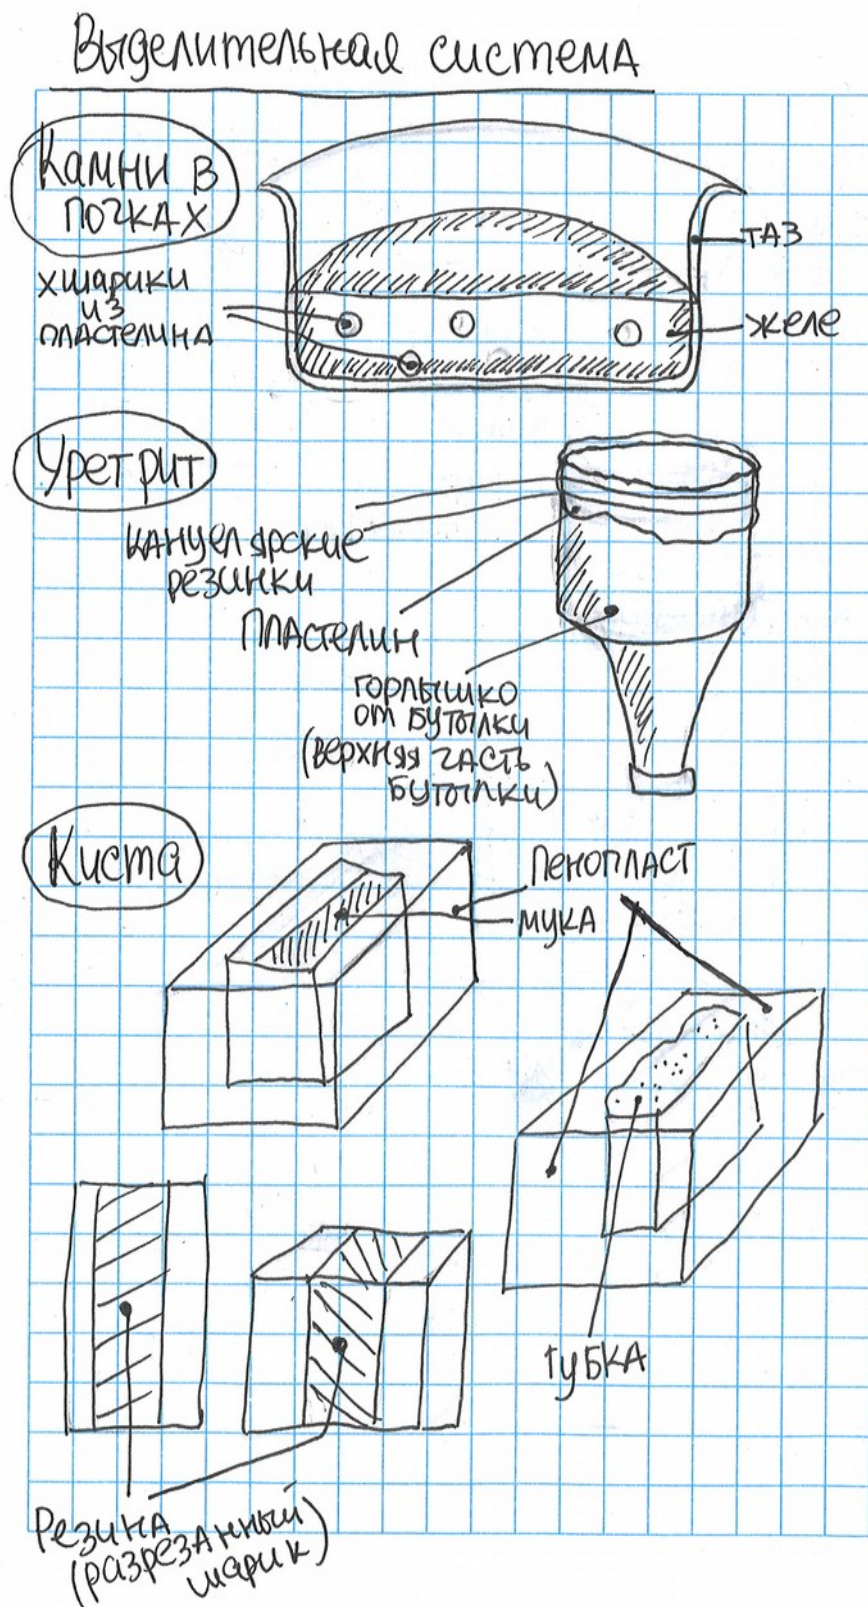 Выделительная система
Камни в
почках
ТАЗ
хшарики
из
пластелина
желе
Уретрит
канцелярские
резинки
Пластелин
горлышко
от бутылки
(верхняя часть
бутылки)
Киста
Пенопласт
мука
губка
Резина
(разрезанный
шарик)